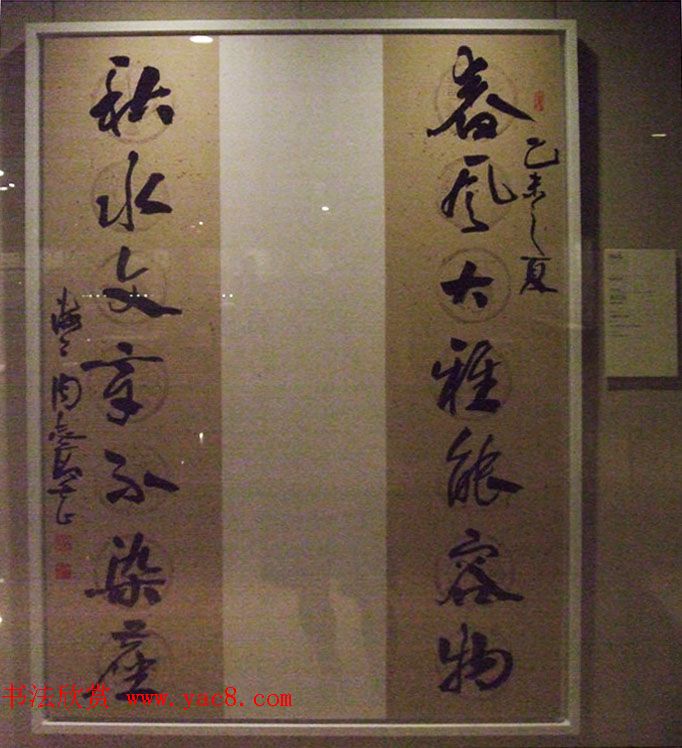 乙未之夏
春风大雅能容物
秋水文章不染塵
海上周慧珺
书法欣赏 www.yac8.com